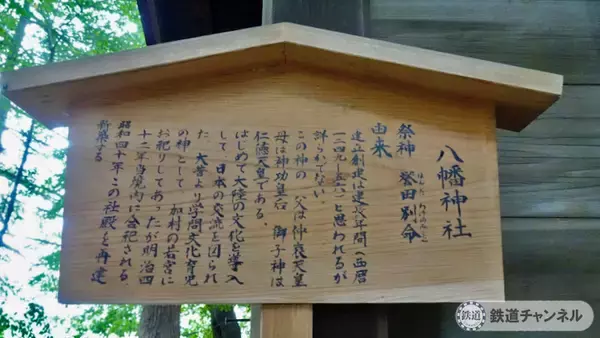 八幡神社
祭神 誉田別命
ほんだ わけのみこと
由来
建立創建は建長年間(西暦
一二四九〜五六)と思われるが
詳らかでない。
この神の 父は仲哀天皇
母は神功皇后 御子神は
仁徳天皇である。
はじめて大陸の文化を導入
して 日本の交流を図られ
た 大昔より学問文化育児
の神として 加村の若宮に
お祀りしてあったが明治四
十二年当境内に合祀される。
昭和四十年この社殿を再建
新築する
鉄道チャンネル
鉄道